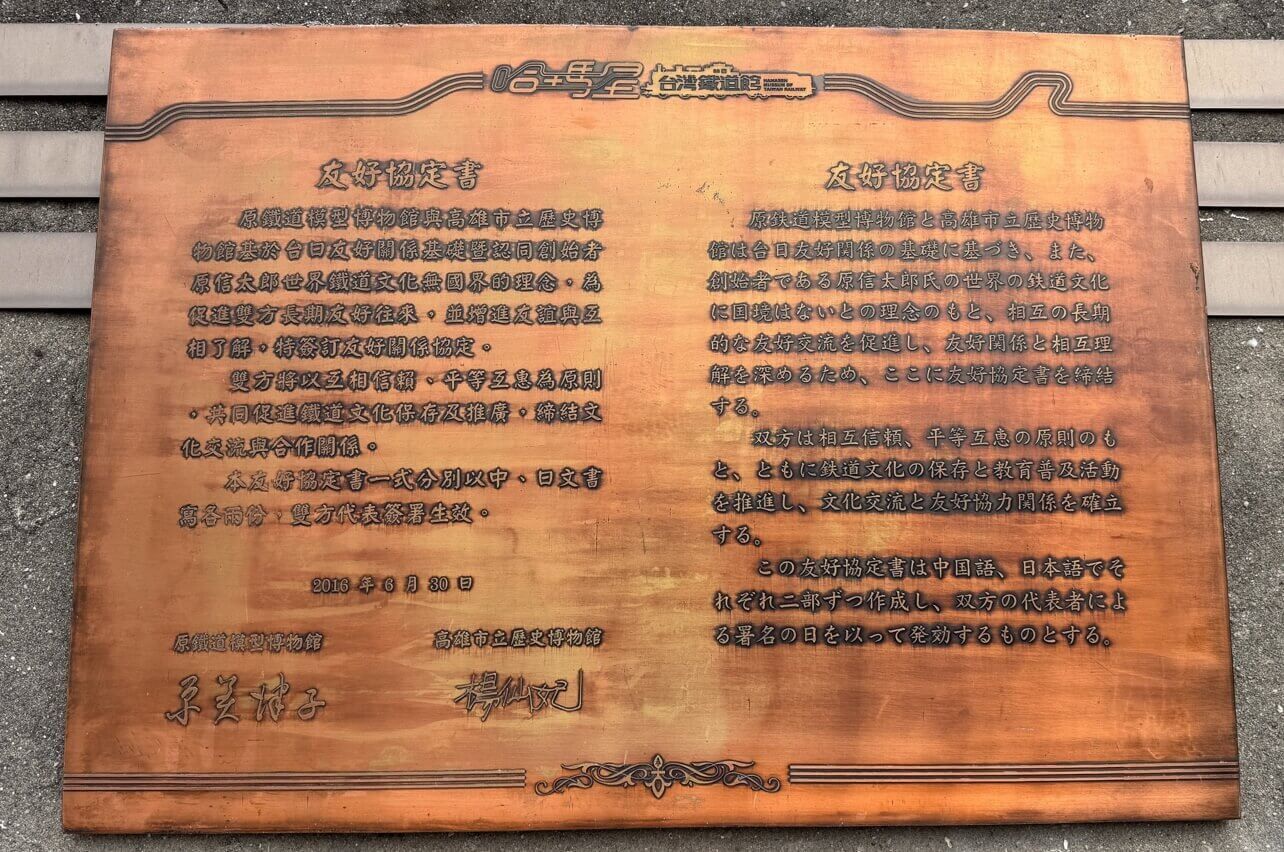 哈瑪星 台灣鐵道館 HAMASEN MUSEUM OF TAIWAN RAILWAY
友好協定書
原鐵道模型博物館與高雄市立歷史博
物館基於台日友好關係基礎暨認同創始者
原信太郎世界鐵道文化無國界的理念，為
促進雙方長期友好往來，並增進友誼與互
相了解，特簽訂友好關係協定。
雙方將以互相信賴、平等互惠為原則
，共同促進鐵道文化保存及推廣，締結文
化交流與合作關係。
本友好協定書一式分別以中、日文書
寫各兩份，雙方代表簽署生效。
2016 年 6 月 30 日
原鐵道模型博物館
高雄市立歷史博物館
原美津子
楊仙妃
友好協定書
原鉄道模型博物館と高雄市立歴史博物
館は台日友好関係の基礎に基づき、また、
創始者である原信太郎氏の世界の鉄道文化
に国境はないとの理念のもと、相互の長期
的な友好交流を促進し、友好関係と相互理
解を深めるため、ここに友好協定書を締結
する。
双方は相互信頼、平等互恵の原則のも
と、ともに鉄道文化の保存と教育普及活動
を推進し、文化交流と友好協力関係を確立
する。
この友好協定書は中国語、日本語でそ
れぞれ二部ずつ作成し、双方の代表者によ
る署名の日を以って発効するものとする。